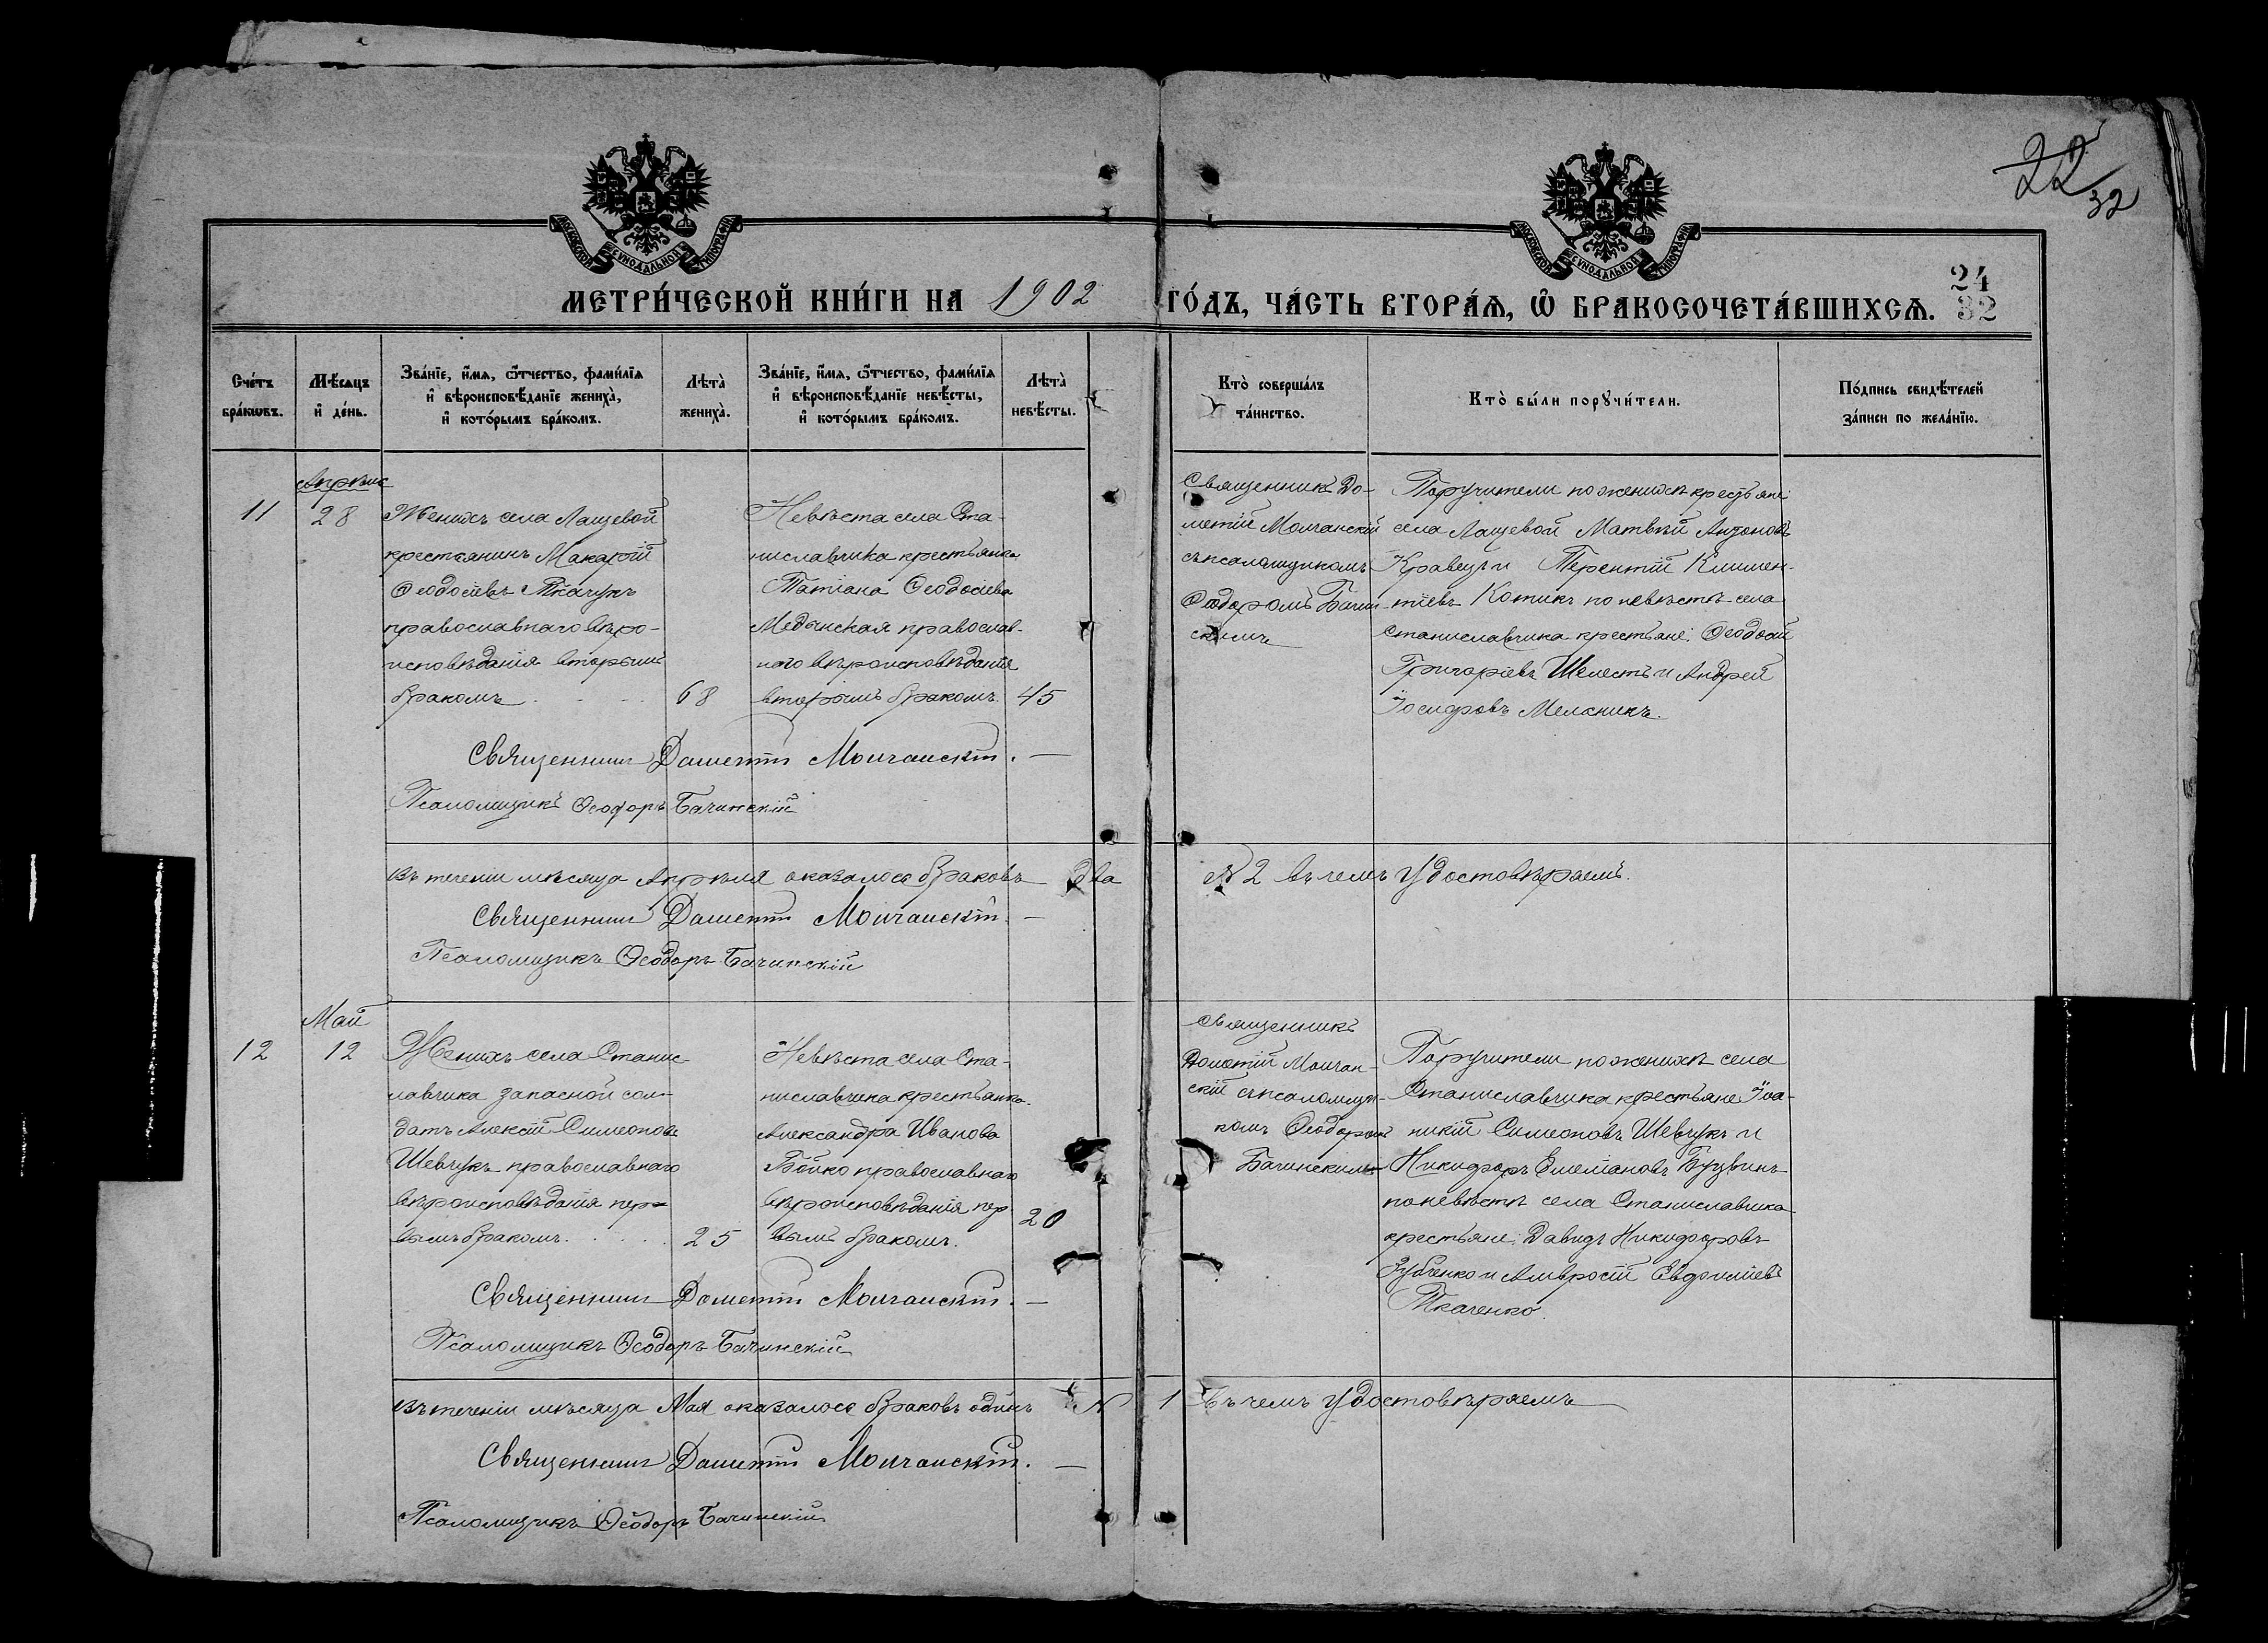 22
32
МОСКОВСКОЙ СУНОДАЛЬНОЙ ТИПОГРАФІИ
МОСКОВСКОЙ СУНОДАЛЬНОЙ ТИПОГРАФІИ
МЕТРИ́ЧЕСКОЙ КНИ́ГИ НА 1902 ГО́ДЪ, ЧА́СТЬ ВТОРА́Ѧ, Ѽ БРАКОСОЧЕТА́ВШИХСѦ.
24
32
Сче́тъ
бра́кѡвъ.
Мѣ́сѧцъ
и҆ де́нь.
Зва́нїе, и҆́мѧ, ѻ҆́тчество, фами́лїѧ
и҆ вѣроисповѣ́данїе жениха̀,
и҆ кото́рымъ бра́комъ.
Лѣта̀
жениха̀.
Зва́нїе, и҆́мѧ, ѻ҆́тчество, фами́лїѧ
и҆ вѣроисповѣ́данїе невѣ́сты,
и҆ кото́рымъ бра́комъ.
Лѣта̀
невѣ́сты.
Кто̀ соверша́лъ
та́инство.
Кто̀ бы́ли порꙋчи́тели.
По́дпись свидѣ́телей
за́писи по жела́нїю.
11
Апрѣль
28
Женихъ села Лащевой
крестьянинъ Макарій
Ѳеодосіевъ Ткачукъ
православнаго вѣро-
исповѣданія вторымъ
бракомъ
68
Невѣста села Ста-
ниславчика крестьянка
Татіана Ѳеодосіева
Медынская православ-
наго вѣроисповѣданія
вторымъ бракомъ.
45
Священникъ До-
метій Молчанскій
съ псаломщикомъ
Ѳеодоромъ Бачин-
скимъ
Поручители по женихѣ крестьяне
села Лащевой Матвѣй Антоновъ
Кравецъ и Терентій Климен-
тіевъ Котикъ по невѣстѣ села
Станиславчика крестьяне: Ѳеодосій
Григоріевъ Шелестъ и Андрей
Іосифовъ Мельникъ.
Священникъ Дометій Молчанскій. —
Псаломщикъ Ѳеодоръ Бачинскій
Въ теченіи мѣсяца Апрѣля оказалось браковъ два № 2 въ чемъ удостовѣряемъ.
Священникъ Дометій Молчанскій. —
Псаломщикъ Ѳеодоръ Бачинскій
12
Май
12
Женихъ села Станис-
лавчика запасной сол-
датъ Алексій Симеоновъ
Шевчукъ православнаго
вѣроисповѣданія пер-
вымъ бракомъ.
25
Невѣста села Ста-
ниславчика крестьянка
Александра Иванова
Бойко православнаго
вѣроисповѣданія пер
вымъ бракомъ.
20
Священникъ
Дометій Молчан-
скій съ псаломщи-
комъ Ѳеодоромъ
Бачинскимъ
Поручители по женихѣ села
Станиславчика крестьяне Іоа-
никій Симеоновъ Шевчукъ и
Никифоръ Емеліановъ
по невѣстѣ села Станиславчика
крестьяне: Давидъ Никифоровъ
Зубченко и Амвросій Евдокимовъ
Ткаченко.
Священникъ Дометій Молчанскій. —
Псаломщикъ Ѳеодоръ Бачинскій
Въ теченіи мѣсяца Мая оказалось браковъ одинъ № 1 въ чемъ удостовѣряемъ
Священникъ Дометій Молчанскій. —
Псаломщикъ Ѳеодоръ Бачинскій